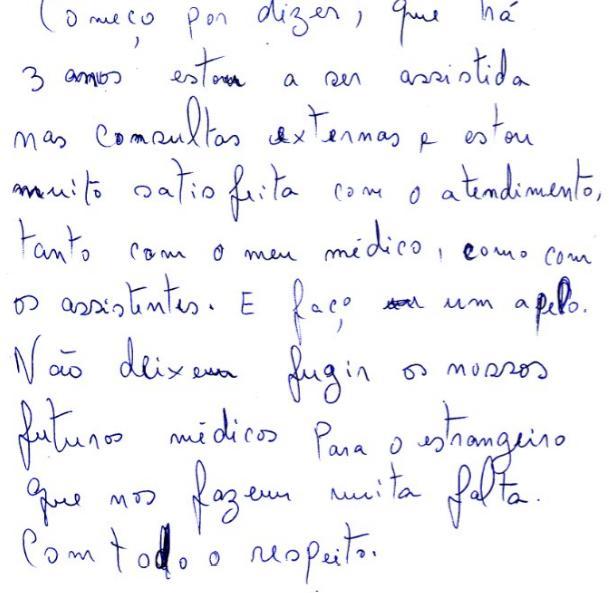 Começo por dizer, que há
3 anos estou a ser assistida
nas consultas externas e estou
muito satisfeita com o atendimento,
tanto com o meu médico, como com
os assistentes. E faço um apelo.
Não deixem fugir os nossos
futuros médicos Para o estrangeiro
que nos fazem muita falta.
Com todo o respeito.